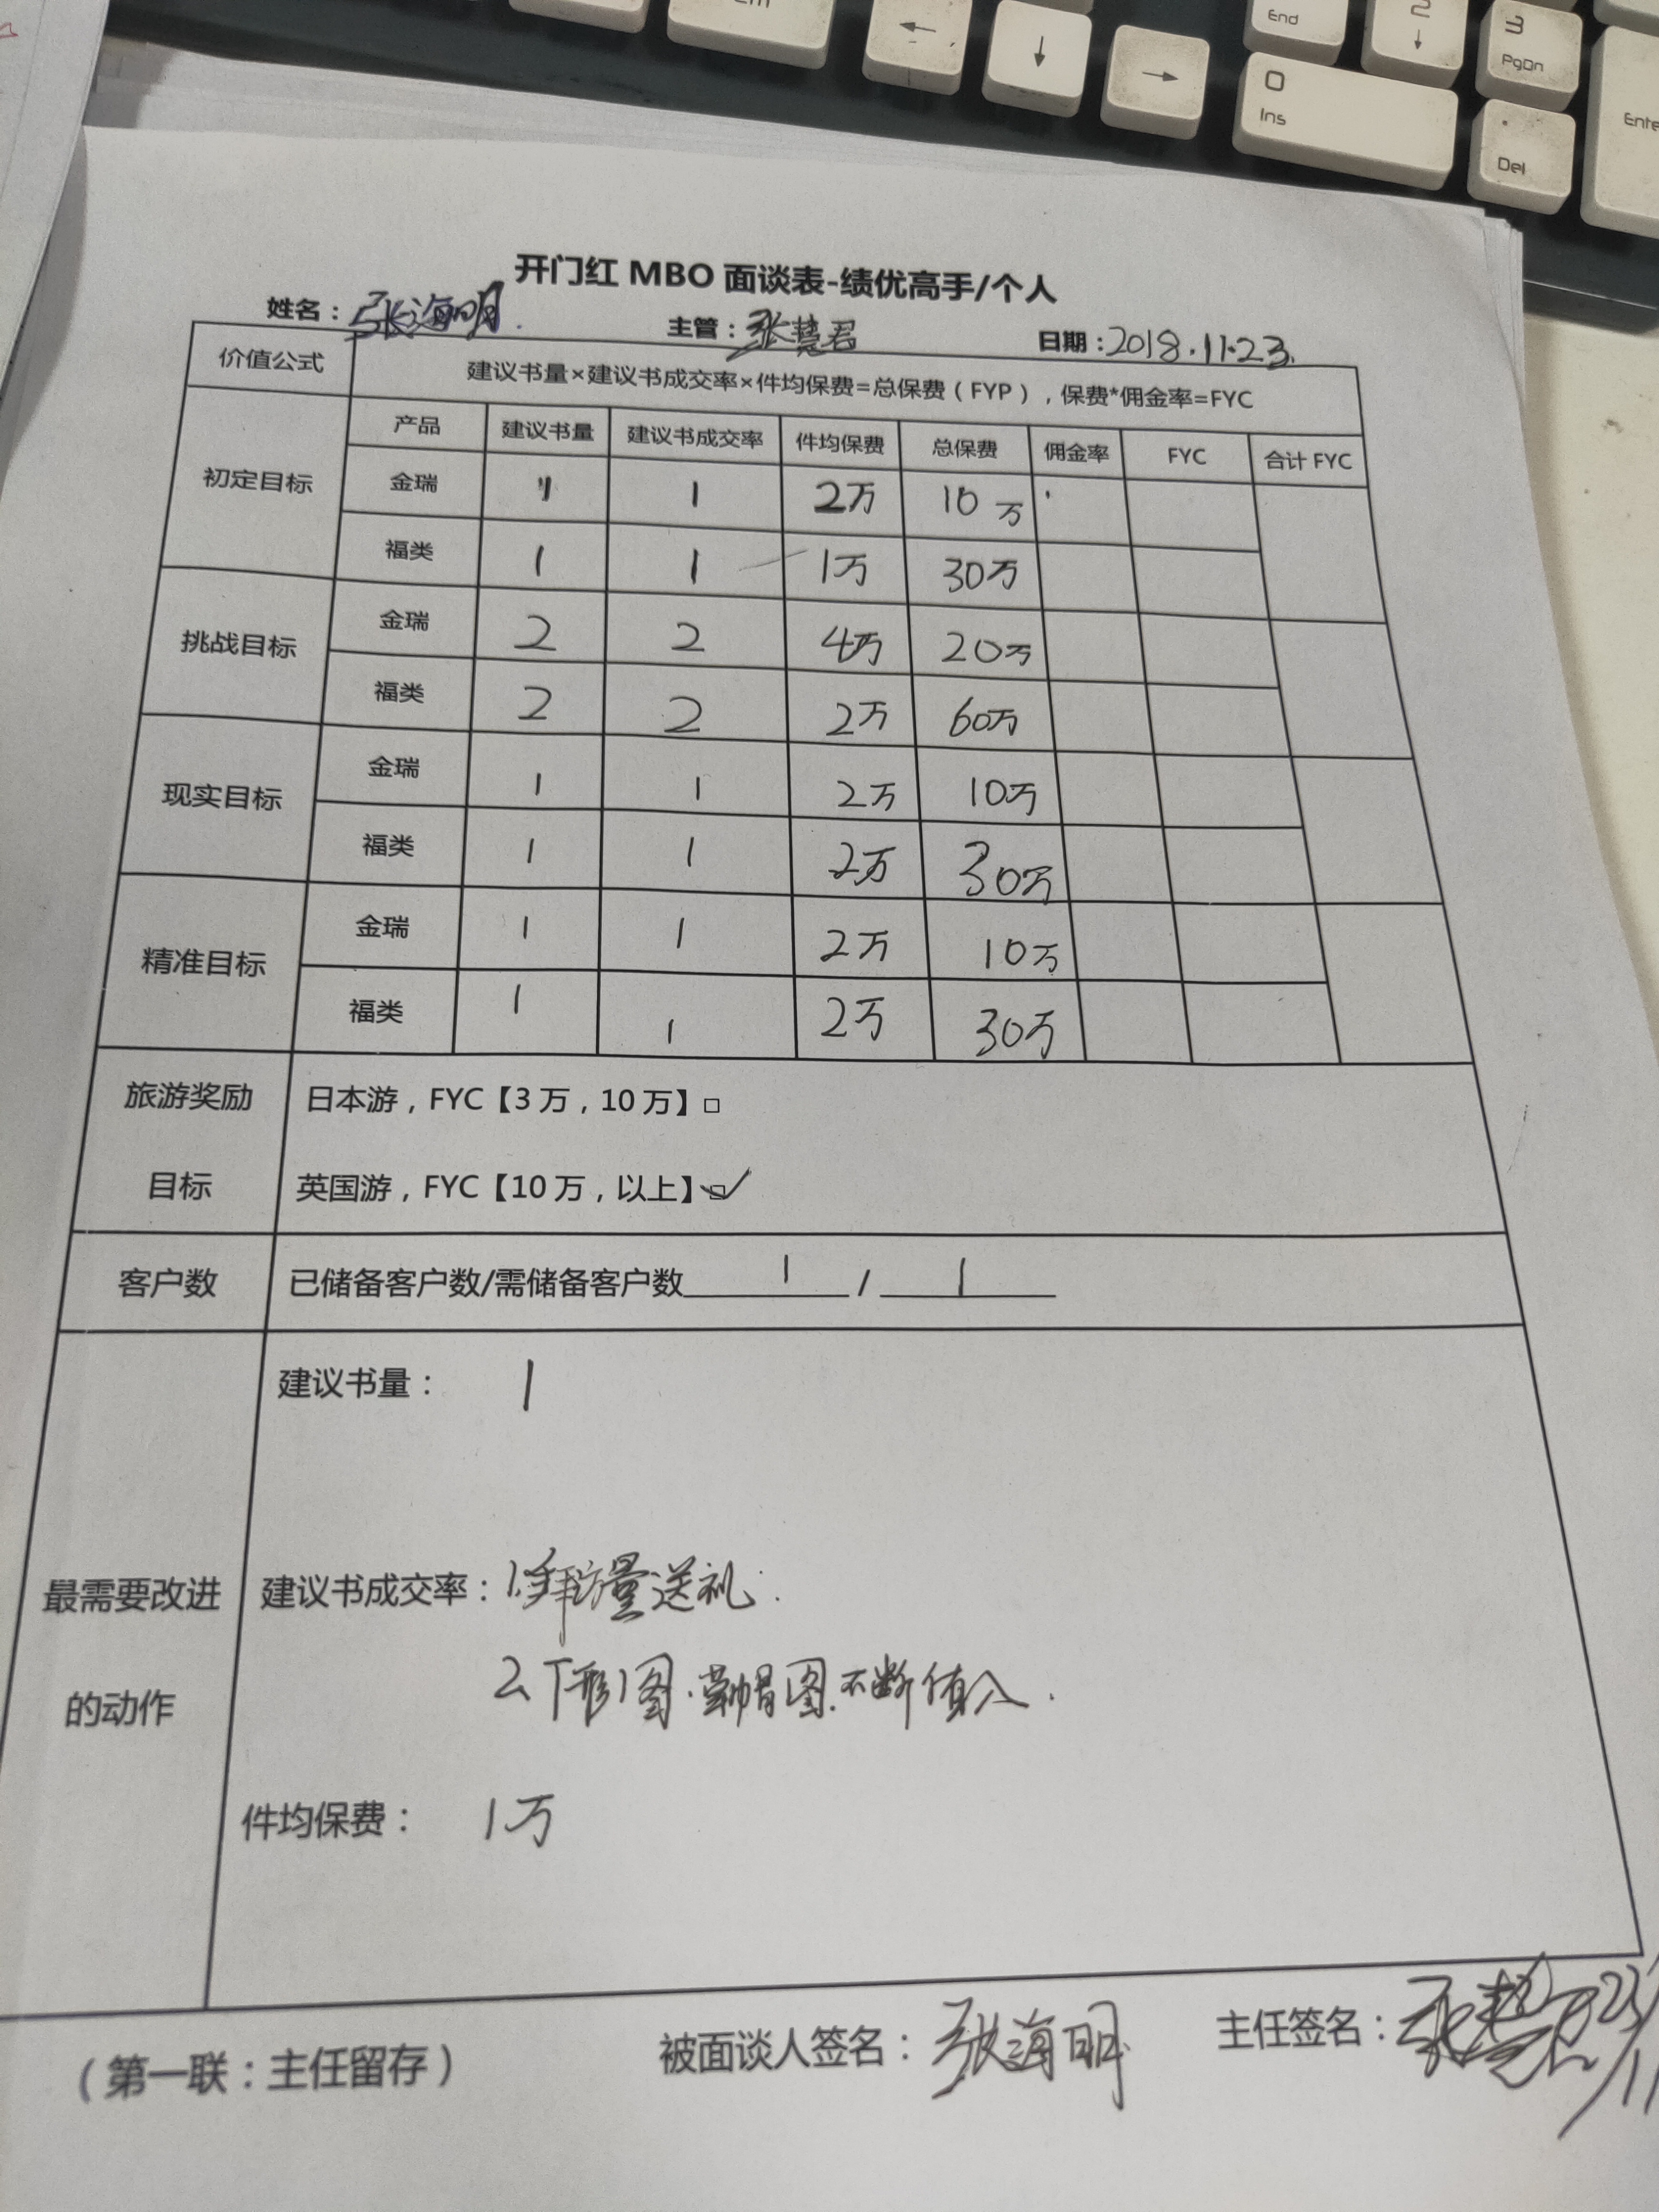 End
2
3
PgDn
0
Ins
.
Del
Ente
开门红 MBO 面谈表-绩优高手/个人
姓名：张海明. 主管：张慧君 日期：2018.11.23.
价值公式 建议书量×建议书成交率×件均保费=总保费（FYP），保费*佣金率=FYC
产品 建议书量 建议书成交率 件均保费 总保费 佣金率 FYC 合计 FYC
初定目标
金瑞 1 1 2万 10万
福类 1 1 1万 30万
挑战目标
金瑞 2 2 4万 20万
福类 2 2 2万 60万
现实目标
金瑞 1 1 2万 10万
福类 1 1 2万 30万
精准目标
金瑞 1 1 2万 10万
福类 1 1 2万 30万
旅游奖励
目标
日本游，FYC【3 万，10 万】□
英国游，FYC【10 万，以上】☑
客户数 已储备客户数/需储备客户数 1 / 1
最需要改进
的动作
建议书量： 1
建议书成交率：1.拜访量送礼.
2.T形图.草帽图.不断植入.
件均保费： 1万
（第一联：主任留存） 被面谈人签名：张海明 主任签名：张慧君 23/11